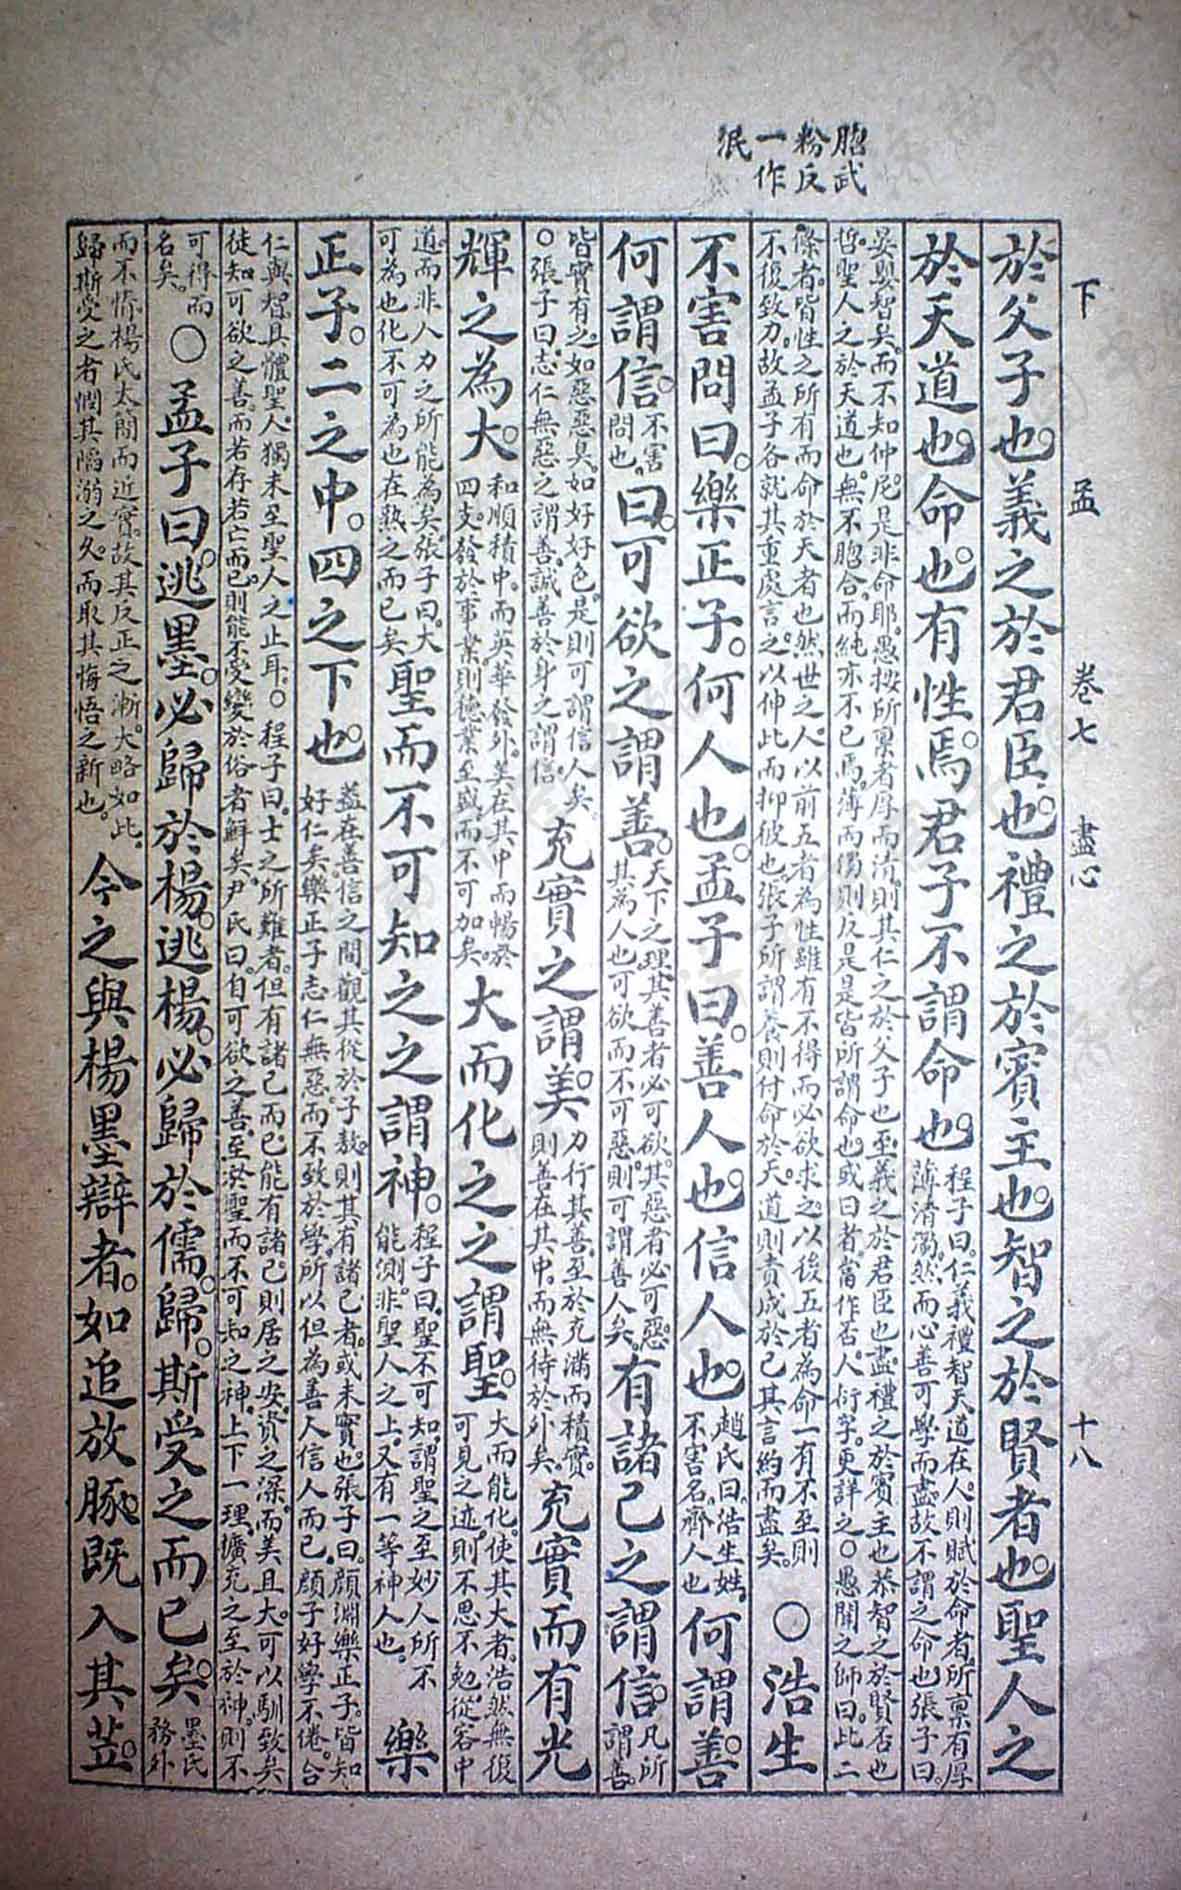 脗武
粉反
一作
泯
下孟 卷七 盡心 十八
於父子也。義之於君臣也。禮之於賓主也。智之於賢者也。聖人之
於天道也。命也。有性焉。君子不謂命也。程子曰。仁義禮智天道在人。則賦於命者。所稟有厚薄清濁。然而心善可學而盡。故不謂之命也。張子曰。
晏嬰智矣。而不知仲尼。是非命耶。愚按所稟者厚而清。則其仁之於父子也至。義之於君臣也盡。禮之於賓主也恭。智之於賢否也
哲。聖人之於天道也。無不脗合。而純亦不已焉。薄而濁則反是。是皆所謂命也。或曰者。當作否。人衍字。更詳之。○愚聞之師曰。此二
條者。皆性之所有而命於天者也。然世之人。以前五者為性。雖有不得而必欲求之。以後五者為命。一有不至。則不復致力。故孟子各就其重處言之。以伸此而抑彼也。張子所謂養則付命於天。道則責成於己。其言約而盡矣。○浩生
不害問曰。樂正子。何人也。孟子曰。善人也。信人也。趙氏曰。浩生姓。不害名。齊人也 何謂善。
何謂信。不害問也。曰。可欲之謂善。天下之理。其善者必可欲。其惡者必可惡。其為人也可欲而不可惡。則可謂善人矣。有諸己之謂信。凡所謂善。
皆實有之。如惡惡臭。如好好色。是則可謂信人矣。○張子曰。志仁無惡之謂善。誠善於身之謂信。充實之謂美。力行其善。至於充滿而積實。則善在其中。而無待於外矣。充實而有光
輝之為大。和順積中。而英華發外。美在其中而暢於四支。發於事業。則德業至盛而不可加矣。大而化之之謂聖。大而能化。使其大者。浩然無復可見之迹。則不思不勉。從容中
道。而非人力之所能為矣。張子曰。大可為也化不可為也在熟之而已矣 聖而不可知之之謂神。程子曰。聖不可知。謂聖之至妙人所不能測。非聖人之上。又有一等神人也。樂
正子。二之中。四之下也。蓋在善信之間。觀其從於子敖。則其有諸己者。或未實也。張子曰。顏淵樂正子。皆知好仁矣。樂正子志仁無惡。而不致於學。所以但為善人信人而已。顏子好學不倦。合
仁與智。具體聖人。獨未至聖人之止耳。○程子曰。士之所難者。但有諸己而已。能有諸己。則居之安。資之深。而美且大。可以馴致矣
徒知可欲之善。而若存若亡而已。則能不受變於俗者鮮矣。尹氏曰。自可欲之善。至於聖而不可知之神。上下一理。擴充之至於神。則不
可得而名矣。○孟子曰。逃墨。必歸於楊。逃楊。必歸於儒。歸。斯受之而已矣。墨氏務外
而不情。楊氏太簡而近實。故其反正之漸。大略如此。歸斯受之者。憫其陷溺之久。而取其悔悟之新也。今之與楊墨辯者。如追放豚。既入其苙。